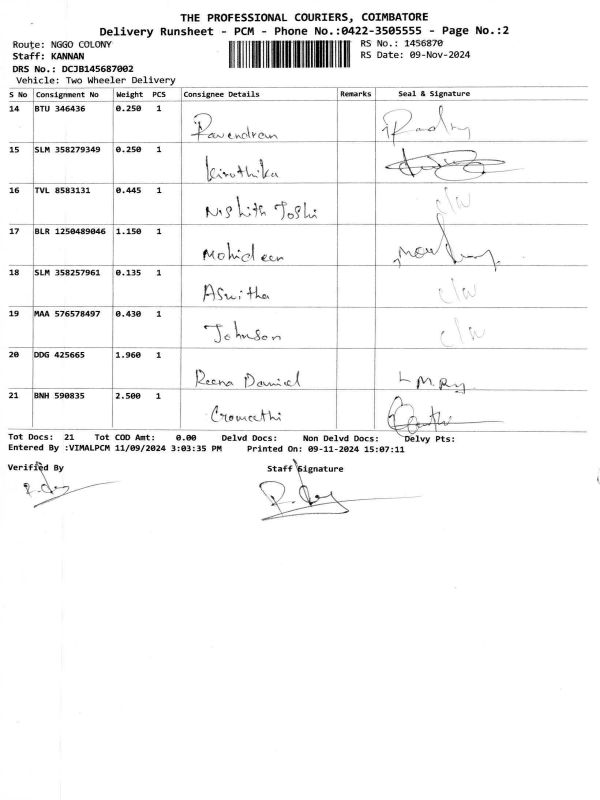 THE PROFESSIONAL COURIERS, COIMBATORE
Delivery Runsheet - PCM - Phone No.:0422-3505555 - Page No.:2
Route: NGGO COLONY RS No.: 1456870
Staff: KANNAN RS Date: 09-Nov-2024
DRS No.: DCJB145687002
Vehicle: Two Wheeler Delivery
S No Consignment No Weight PCS Consignee Details Remarks Seal & Signature
14 BTU 346436 0.250 1 Ravendran
15 SLM 358279349 0.250 1 Kiruthika
16 TVL 8583131 0.445 1 Nishith Joshi
17 BLR 1250489046 1.150 1 Mohideen
18 SLM 358257961 0.135 1 Aswitha
19 MAA 576578497 0.430 1 Johnson
20 DDG 425665 1.960 1 Reena Daniel
21 BNH 590835 2.500 1
Tot Docs: 21 Tot COD Amt: 0.00 Delvd Docs: Non Delvd Docs: Delvy Pts:
Entered By :VIMALPCM 11/09/2024 3:03:35 PM Printed On: 09-11-2024 15:07:11
Verified By Staff Signature